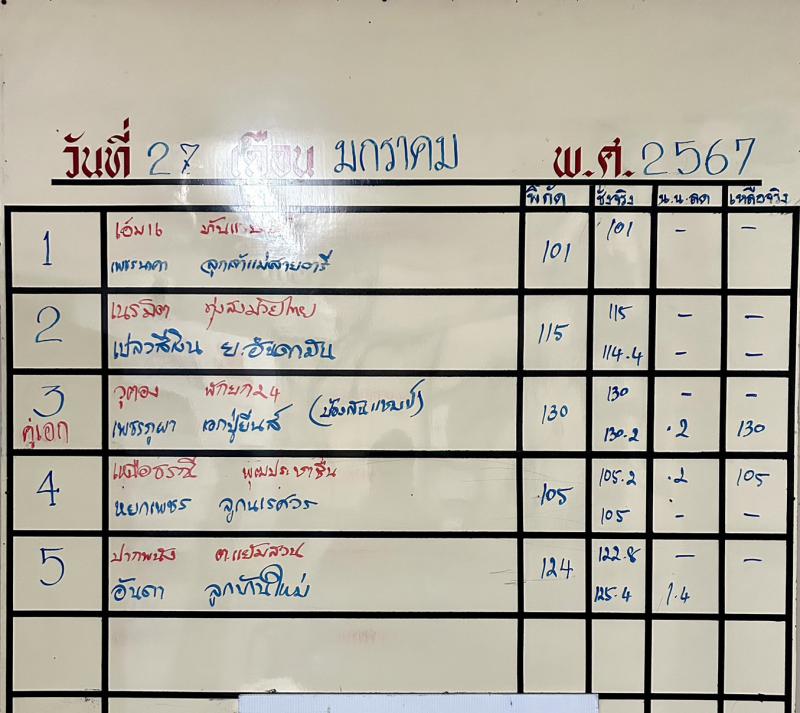 วันที่ 27 เดือน มกราคม พ.ศ. 2567
พิกัด ชั่งจริง น.น.ลด เหลือจริง
1 เอ็ม16 101 101 - -
เพชรนาคา ลูกเจ้าแม่สายวารี
2 เนรมิต ทุ่งสงมวยไทย 115 115 - -
เปลวสีเงิน ย.อันดามัน 114.4 - -
3 วุตอง พักยก24 130 130 - -
คู่เอก เพชรภูผา เอกปู่ยีนส์ (ป้องกันแชมป์) 130.2 .2 130
4 เหนือธรณี 105 105.2 .2 105
หยกเพชร ลูกนเรศวร 105 - -
5 ปากพนัง ต.แย้มสวน 124 122.8 - -
อันดา ลูกบ้านใหม่ 125.4 1.4